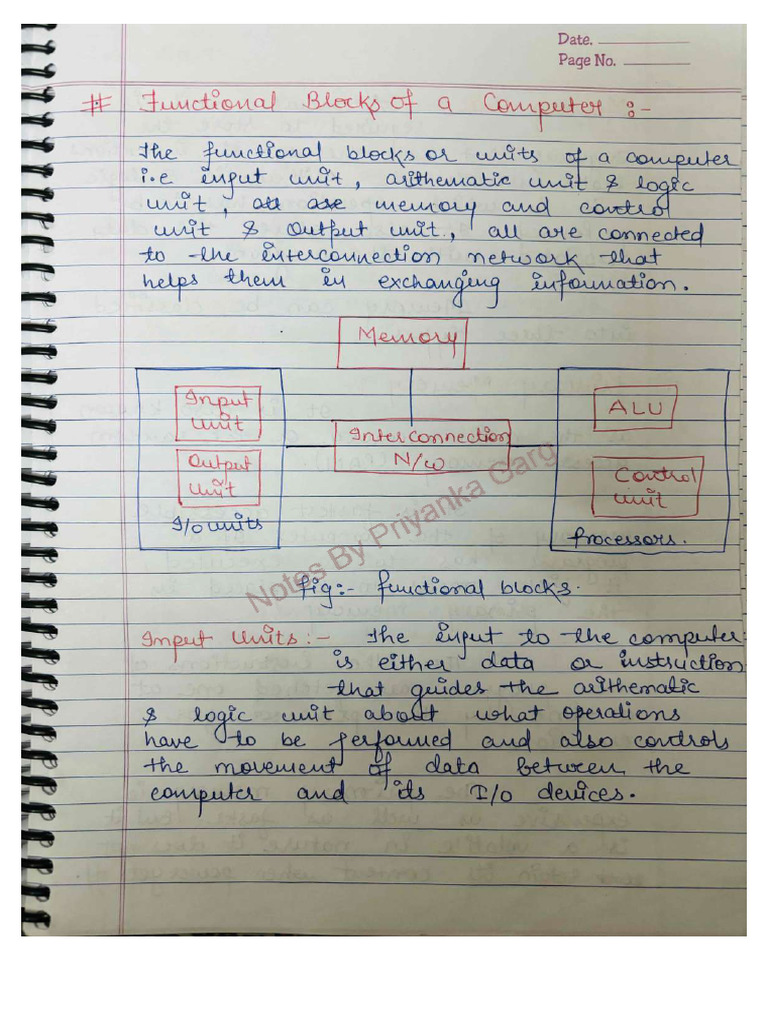 Date.
Page No.
# Functional Blocks of a Computer :-
The functional blocks or units of a computer
i.e input unit, arithematic unit & logic
unit, all are memory and control
unit & Output unit, all are connected
to the interconnection network that
helps them in exchanging information.
Memory
Input
unit
Output
unit
I/O units
Interconnection
N/w
ALU
Control
unit
Processors.
Notes By Priyanka Garg
fig:- functional blocks.
Input Units :- The input to the computer
is either data or instruction
that guides the arithematic
& logic unit about what operations
have to be performed and also controls
the movement of data between the
computer and its I/O devices.